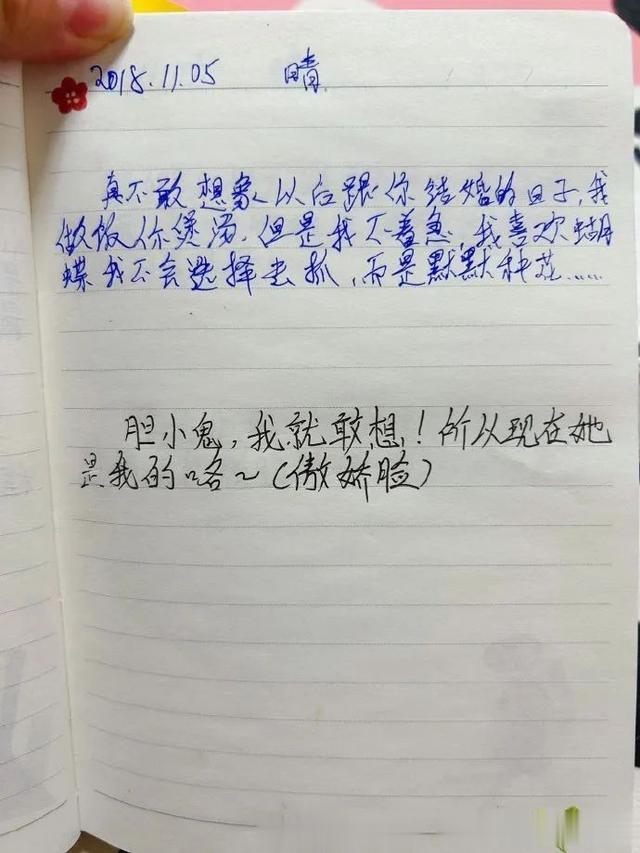 2018.11.05 晴
真不敢想象以后跟你结婚的日子,我
做饭你煲汤,但是我不着急,我喜欢蝴
蝶我不会选择去抓,而是默默种花……
胆小鬼,我就敢想!所以现在她
是我的咯~(傲娇脸)